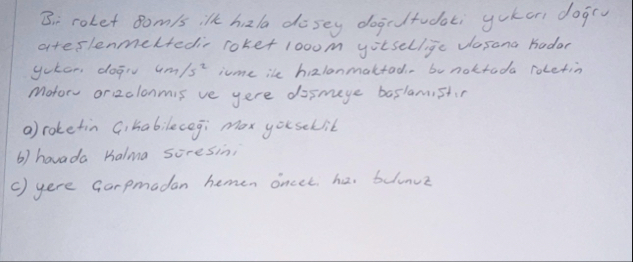 Bir roket 80m/s ilk hızla düşey doğrultudaki yukarı doğru
ateşlenmektedir roket 1000m yüksekliğe ulaşana kadar
yukarı doğru 4m/s² ivme ile hızlanmaktadır bu noktada roketin
motoru arızalanmış ve yere düşmeye başlamıştır
a) roketin çıkabileceği max yükseklik
b) havada kalma süresini
c) yere çarpmadan hemen önceki hızı bulunuz